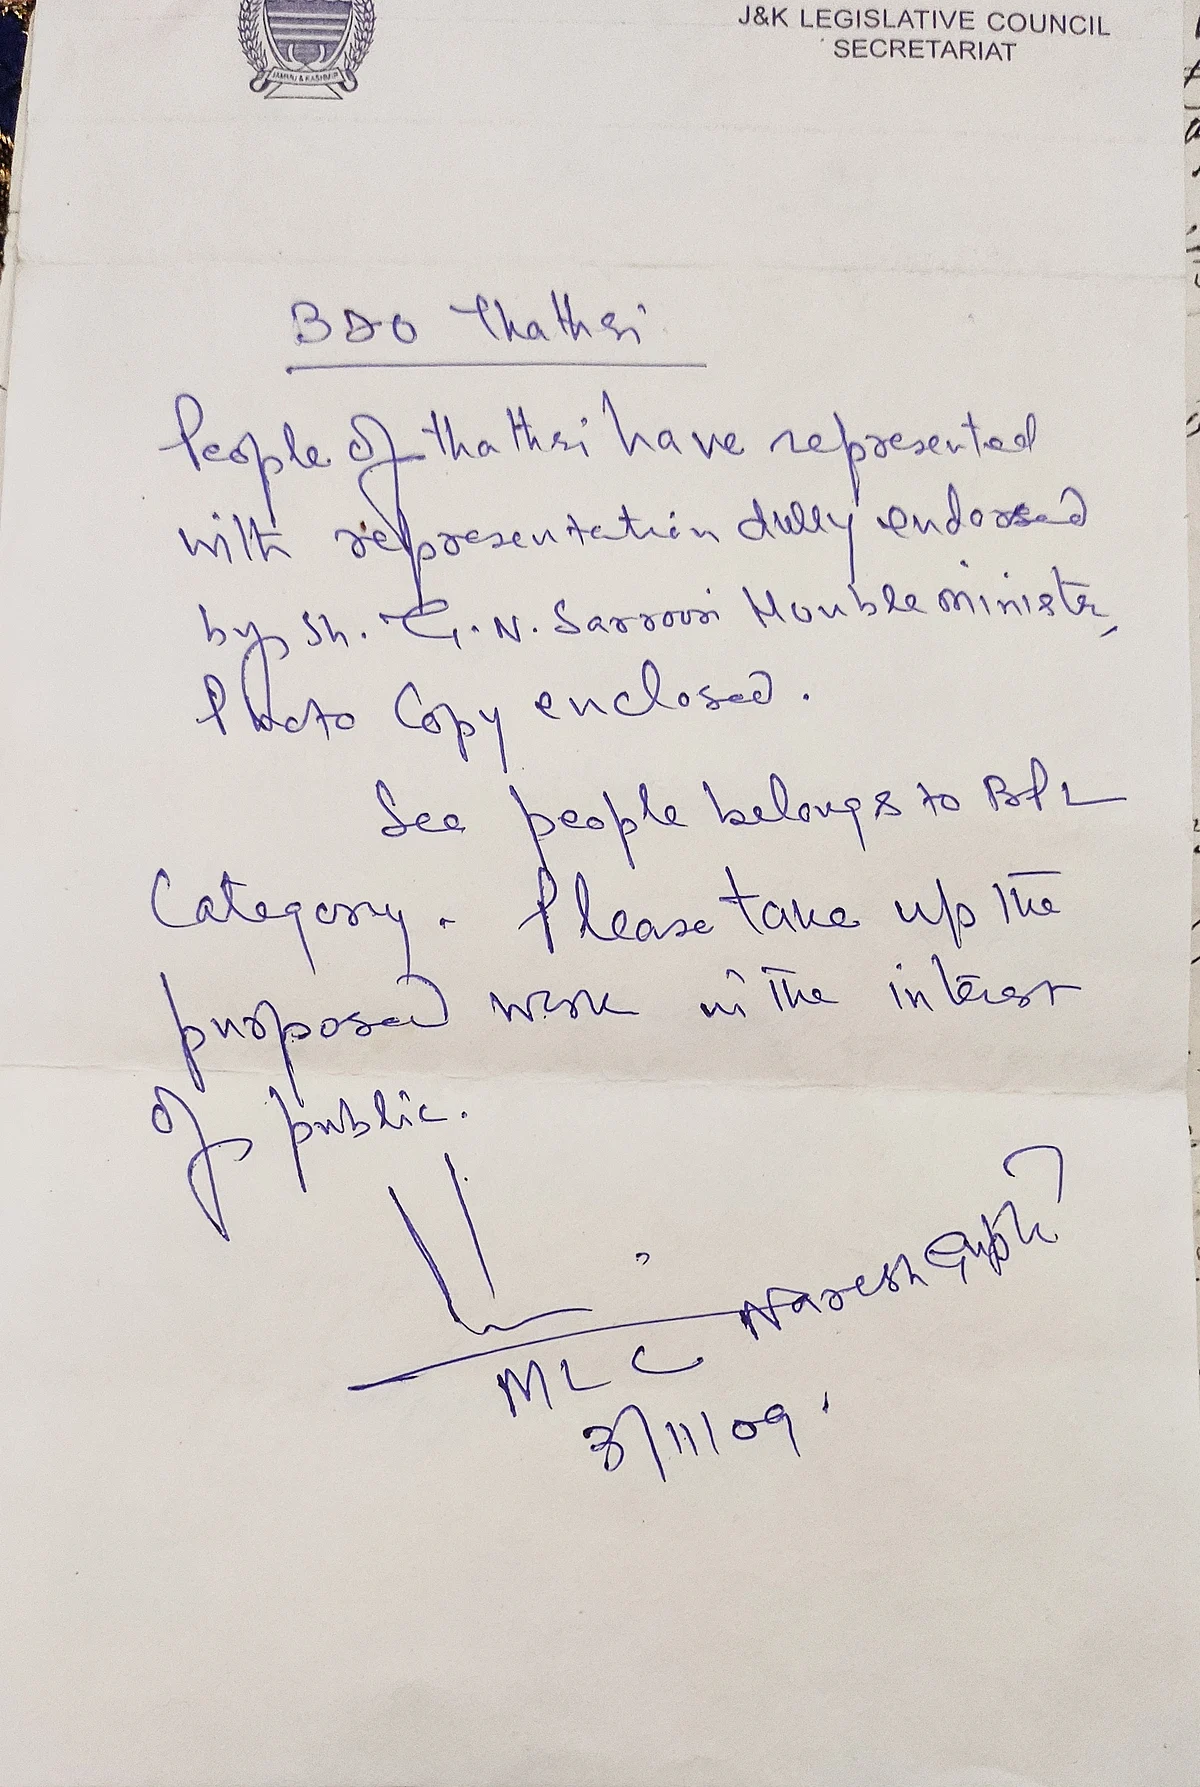 J&K LEGISLATIVE COUNCIL
SECRETARIAT
JAMMU & KASHMIR
BDO Thathri
People of Thathri have represented
with representation dully endorsed
by Sh. G.N. Sarroori Hounble minister,
Photo Copy enclosed.
See people belongs to BPL
Category. Please take up the
purposed work in the interest
of public.
Naresh Gupta
MLC
3/11/09